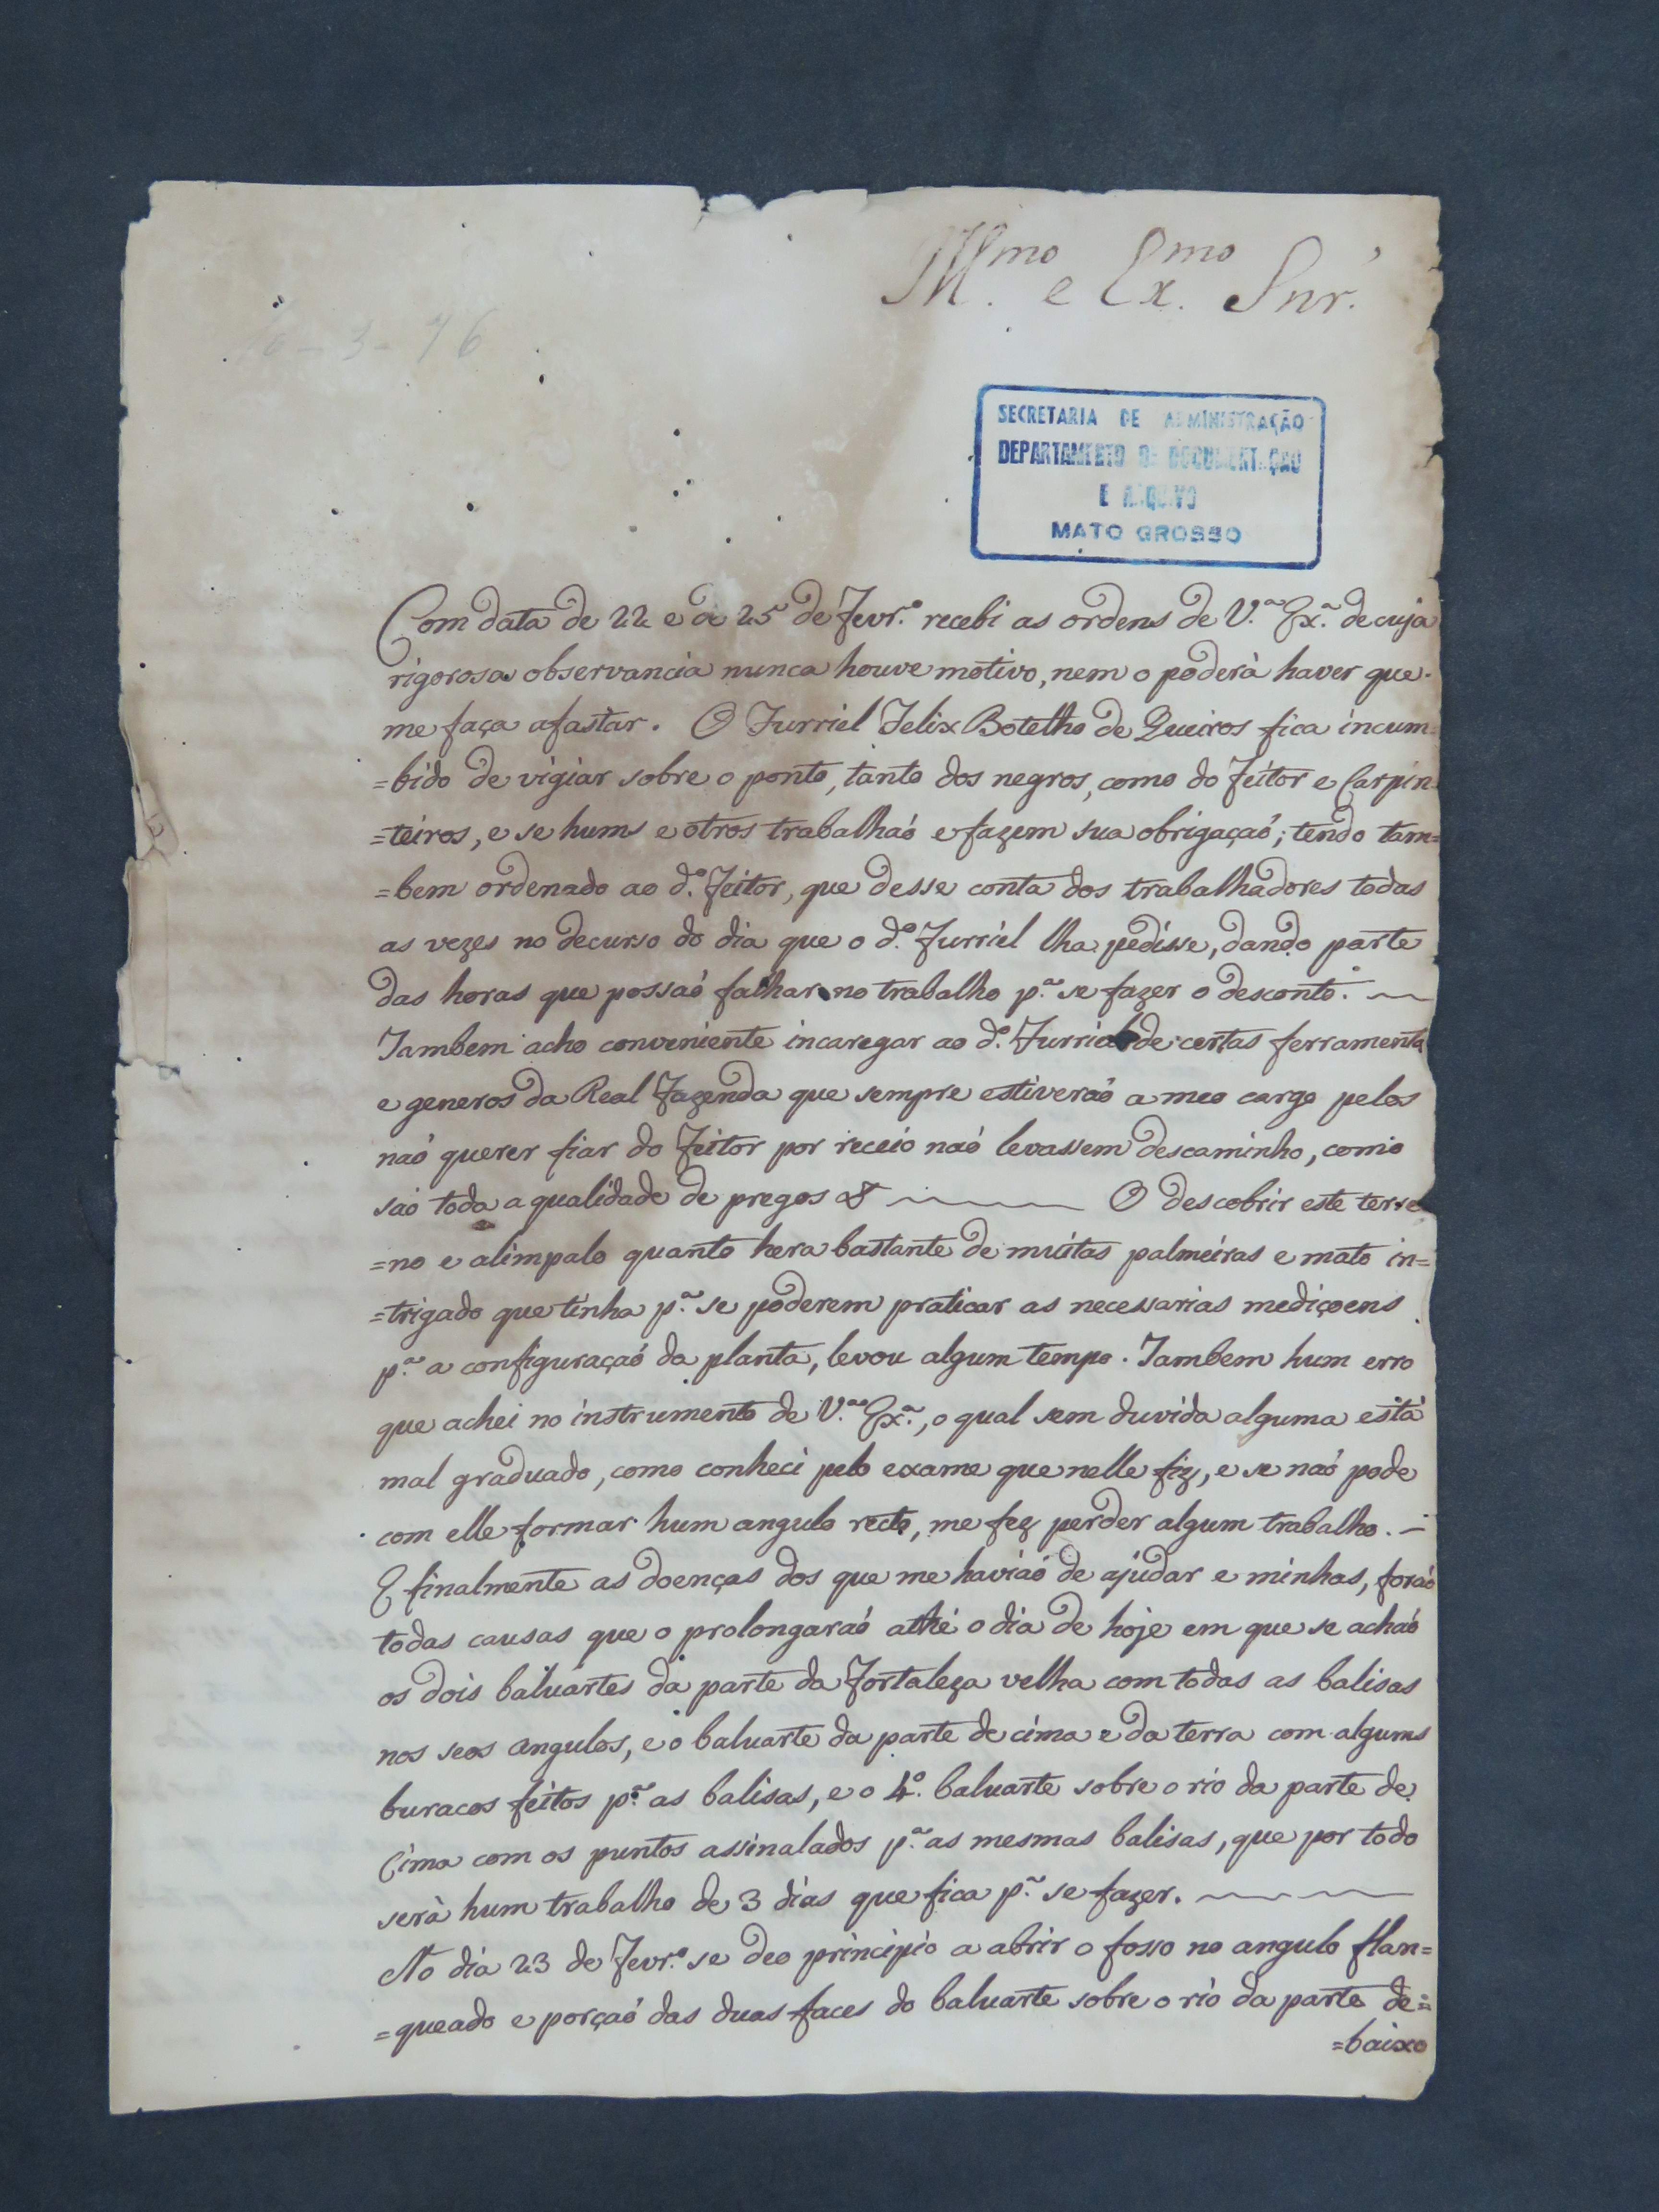 Ill.mo e Ex.mo Snr.
10-3-76
SECRETARIA DE ADMINISTRAÇÃO
DEPARTAMENTO DE DOCUMENTAÇÃO
E ARQUIVO
MATO GROSSO
Com data de 22 e de 25 de Fevr.o recebi as ordens de V.a Ex.a de cuja
rigorosa observancia nunca houve motivo, nem o poderà haver que
me faça afastar. O Furriel Felix Botelho de Queiros fica incum=
=bido de vigiar sobre o ponto, tanto dos negros, como do Feitor e Carpin=
=teiros, e se hums e otros trabalhaó e fazem sua obrigaçaó; tendo tam=
=bem ordenado ao d.o Feitor, que desse conta dos trabalhadores todas
as vezes no decurso do dia que o d.o Furriel lha pedisse, dando parte
das horas que possaó falhar no trabalho p.a se fazer o desconto.
Tambem acho conveniente incaregar ao d.o Furriel de certas ferramenta
e generos da Real Fazenda que sempre estiveraó a meo cargo pelos
naó querer fiar do Feitor por receio naó levassem descaminho, como
saó toda a qualidade de pregos & O descobrir este terre
=no e alimpalo quanto hera bastante de muitas palmeiras e mato in=
=trigado que tinha p.a se poderem praticar as necessarias mediçoens
p.a a configuraçaó da planta, levou algum tempo. Tambem hum erro
que achei no instrumento de V.a Ex.a, o qual sem duvida alguma està
mal graduado, como conheci pelo exame que nelle fiz, e se naó pode
com elle formar hum angulo recto, me fez perder algum trabalho. -
E finalmente as doenças dos que me haviaó de ajudar e minhas, foraó
todas causas que o prolongaraó athé o dia de hoje em que se achaó
os dois baluartes da parte da Fortaleza velha com todas as balisas
nos seos angulos, e o baluarte da parte de cima e da terra com algums
buracos feitos p.a as balisas, e o 4.o baluarte sobre o rio da parte de
Cima com os puntos assinalados p.a as mesmas balisas, que por todo
serà hum trabalho de 3 dias que fica p.a se fazer.
No dia 23 de Fevr.o se deo principio a abrir o fosso no angulo flan=
=queado e porçaó das duas faces do baluarte sobre o rio da parte de=
=baixo